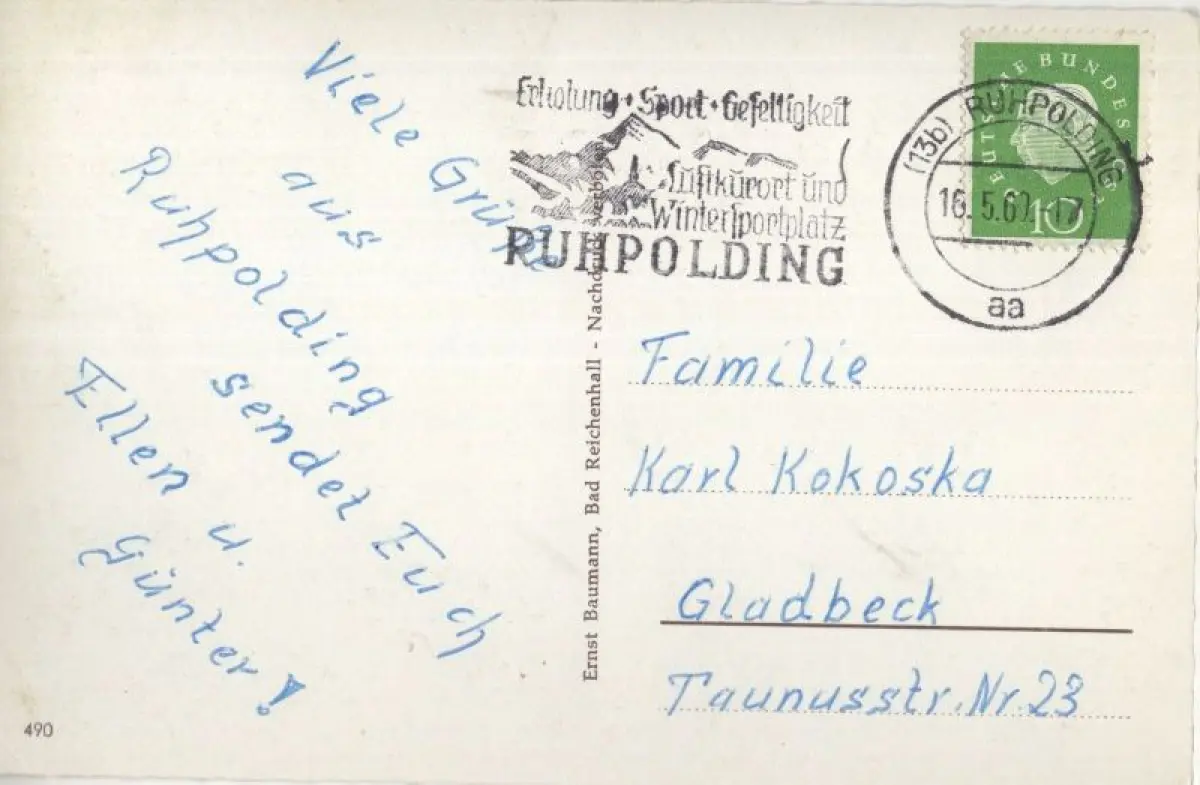 Viele Grüße
aus
Ruhpolding
sendet Euch
Ellen u.
Günter!
490
Erholung • Sport • Geselligkeit
Luftkurort und
Wintersportplatz
RUHPOLDING
Ernst Baumann, Bad Reichenhall - Nachdruck verboten
DEUTSCHE BUNDESPOST
10
(13b) RUHPOLDING 1
16.5.60.-17
aa
Familie
Karl Kokoska
Gladbeck
Taunusstr. Nr. 23